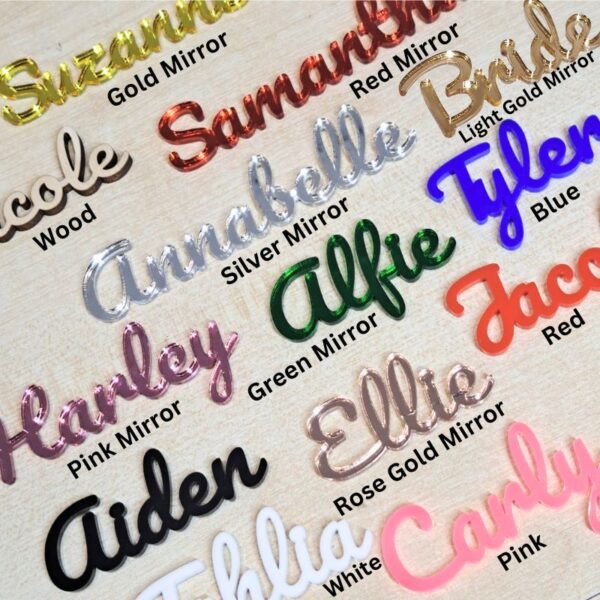 Suzanne
Gold Mirror
Samantha
Red Mirror
Bride
Light Gold Mirror
Wood
Annabelle
Silver Mirror
Tyler
Blue
Alfie
Green Mirror
Jaco
Red
Harley
Pink Mirror
Ellie
Rose Gold Mirror
Aiden
White
Carly
Pink